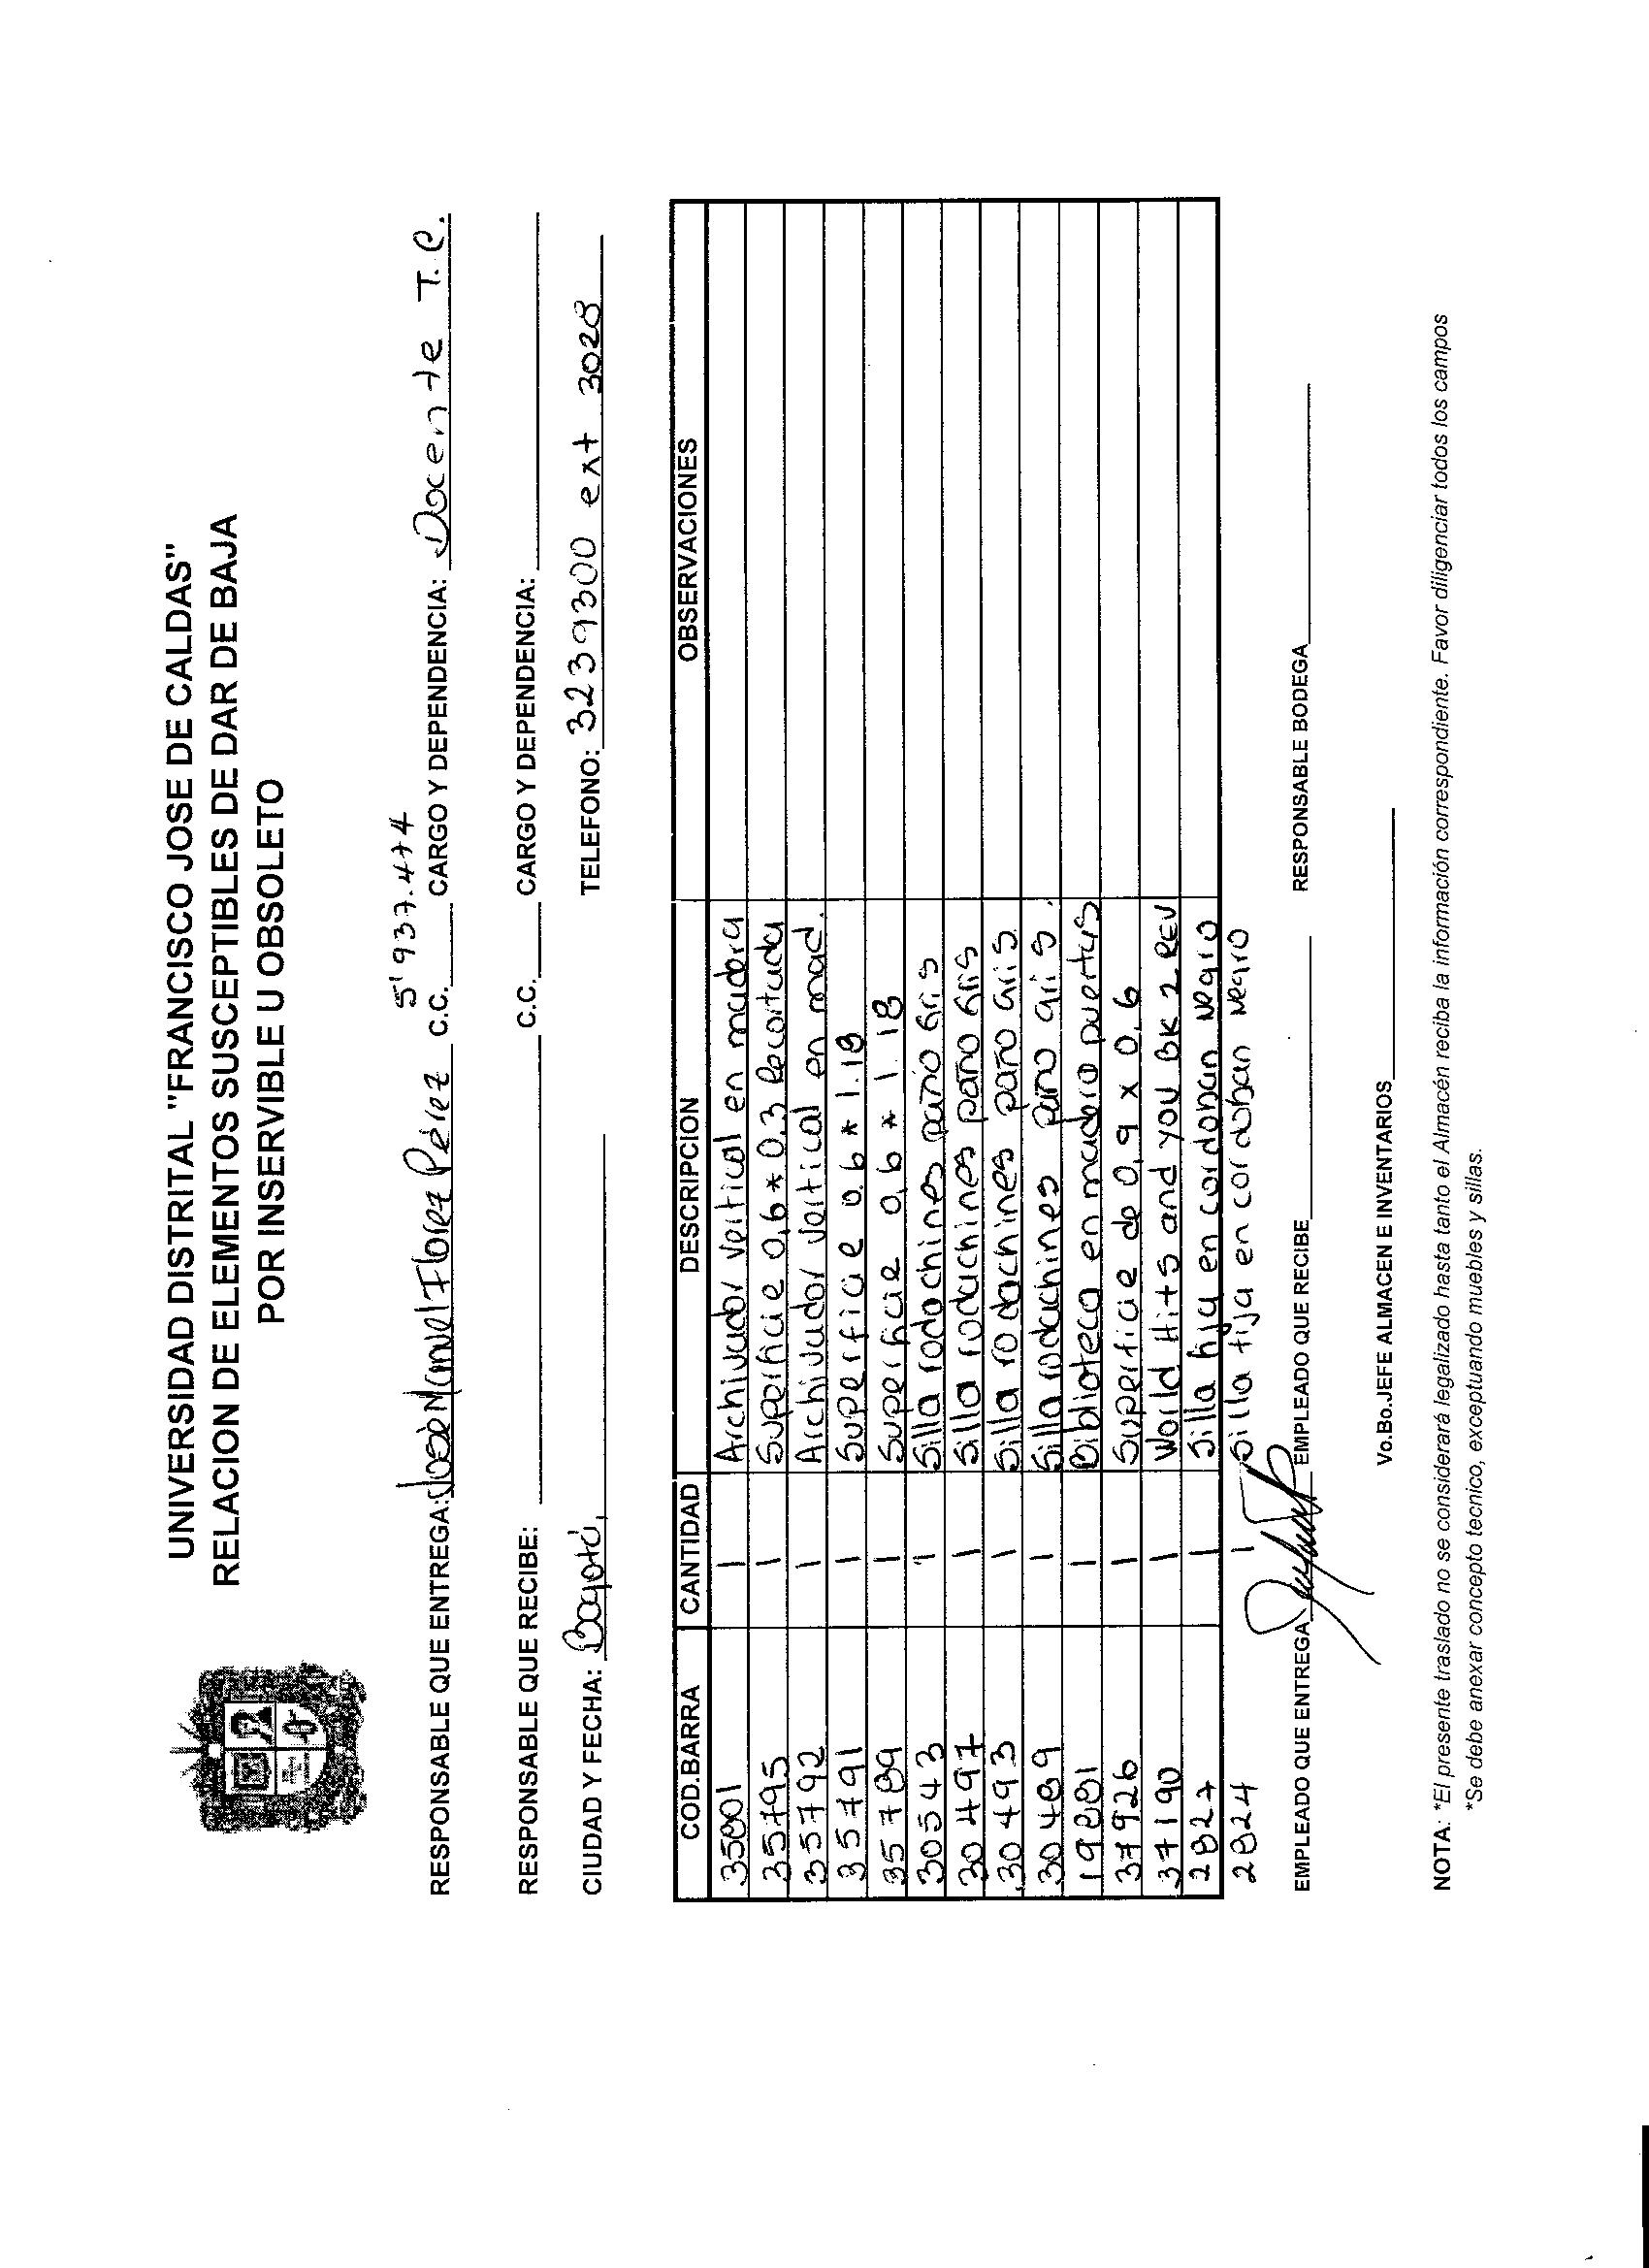 UNIVERSIDAD DISTRITAL "FRANCISCO JOSE DE CALDAS"
RELACION DE ELEMENTOS SUSCEPTIBLES DE DAR DE BAJA
POR INSERVIBLE U OBSOLETO
RESPONSABLE QUE ENTREGA: José Manuel Florez Pérez C.C. 5'937.474 CARGO Y DEPENDENCIA: Docente T.C.
RESPONSABLE QUE RECIBE: C.C. CARGO Y DEPENDENCIA:
CIUDAD Y FECHA: Bogotá, TELEFONO: 3239300 ext 3028
COD.BARRA CANTIDAD DESCRIPCION OBSERVACIONES
35801 1 Archivador vertical en madera
35795 1 Superficie 0,6 * 0.3 Recortada
35792 1 Archivador vertical en mad.
35791 1 Superficie 0.6 * 1.18
35789 1 Superficie 0,6 * 1.18
30543 1 Silla rodachines paño Gris
30497 1 Silla rodachines paño Gris
30493 1 Silla rodachines paño Gris.
30489 1 Silla rodachines paño gris.
19881 1 Biblioteca en madera puertas
37926 1 Superficie de 0,9 x 0,6
37190 1 World Hits and you BK 2 REV
2827 1 Silla fija en cordoban Negro
2824 1 Silla fija en cordoban Negro
EMPLEADO QUE ENTREGA EMPLEADO QUE RECIBE RESPONSABLE BODEGA
Vo.Bo.JEFE ALMACEN E INVENTARIOS
NOTA: *El presente traslado no se considerará legalizado hasta tanto el Almacén reciba la información correspondiente. Favor diligenciar todos los campos
*Se debe anexar concepto tecnico, exceptuando muebles y sillas.